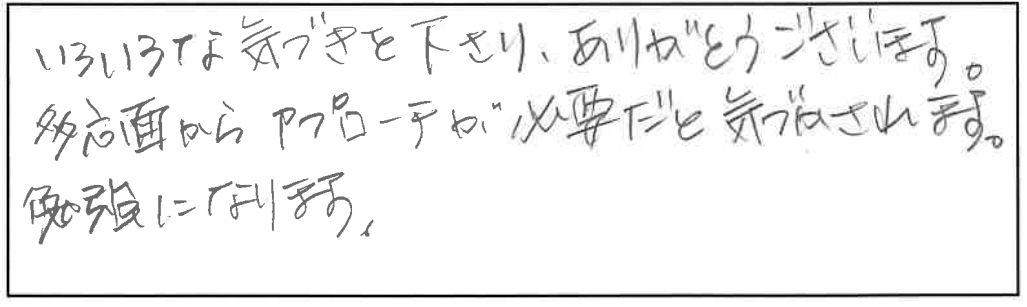 いろいろな気づきを下さり、ありがとうございます。
多方面からアプローチが必要だと気づかされます。
勉強になります。